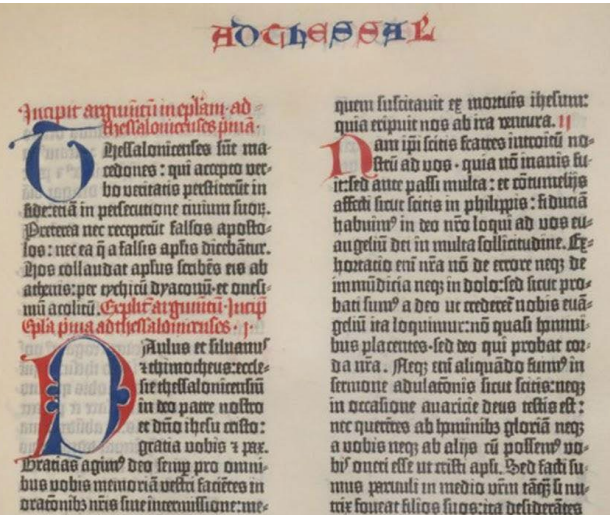 AD THESSAL
Incipit argumētū in eplam · ad
thessalonicenses prima.
Thessalonicenses sūt ma-
cedones : qui accepto ver-
bo veritatis perstiterūt in
fide: etiā in persecutione civium suoꝝ.
Preterea nec receperūt falsos aposto-
los : nec ea q̄ a falsis apl̓is dicebātur.
Hos collaudat apl̓us scribēs eis ab
athenis: per tychicū dyaconū· et onesi-
mū acolitū. Explic̄ argumētū · Incip̄
Epl̓a prima ad thessalonicenses · I
Paulus et silvanus
⁊ thimotheus: eccle-
sie thessalonicensiū
in deo patre nostro
et dn̄o ihesu cristo:
gratia vobis ⁊ pax.
Gratias agimꝰ deo semꝑ pro omni-
bus vobis memoriā vestri faciētes in
oratōnibꝫ nr̄is sine intermissione: me-
quem suscitavit ex mortuis ihesum:
quia eripuit nos ab ira ventura. II
Nam ip̄i scitis fratres introitū no-
strū ad vos · quia nō inanis fu-
it: sed ante passi multa : et cōtumelijs
affecti sicut scitis in philippis : fiduciā
habuimꝰ in deo nr̄o loqui ad vos eu-
angeliū dei in multa sollicitudine. Ex-
hortatio enī nr̄a nō de errore neqꝫ de
immūdicia neqꝫ in dolo: sed sicut pro-
bati sumꝰ a deo ut crederet̄ nobis euā-
geliū ita loquimur: nō quasi homini-
bus placentes · sed deo qui probat cor-
da nr̄a. Neqꝫ enī aliquādo fuimꝰ in
sermone adulatōnis sicut scitis: neqꝫ
in occasione avaricie deus testis est :
nec querētes ab hominibꝫ gloriā neqꝫ
a vobis neqꝫ ab alijs cū possemꝰ vo-
bis oneri esse ut cristi apl̓i. Sed facti su-
mus parvuli in medio vr̄m tāq̄ si nu-
trix foveat filios suos: ita desiderātes